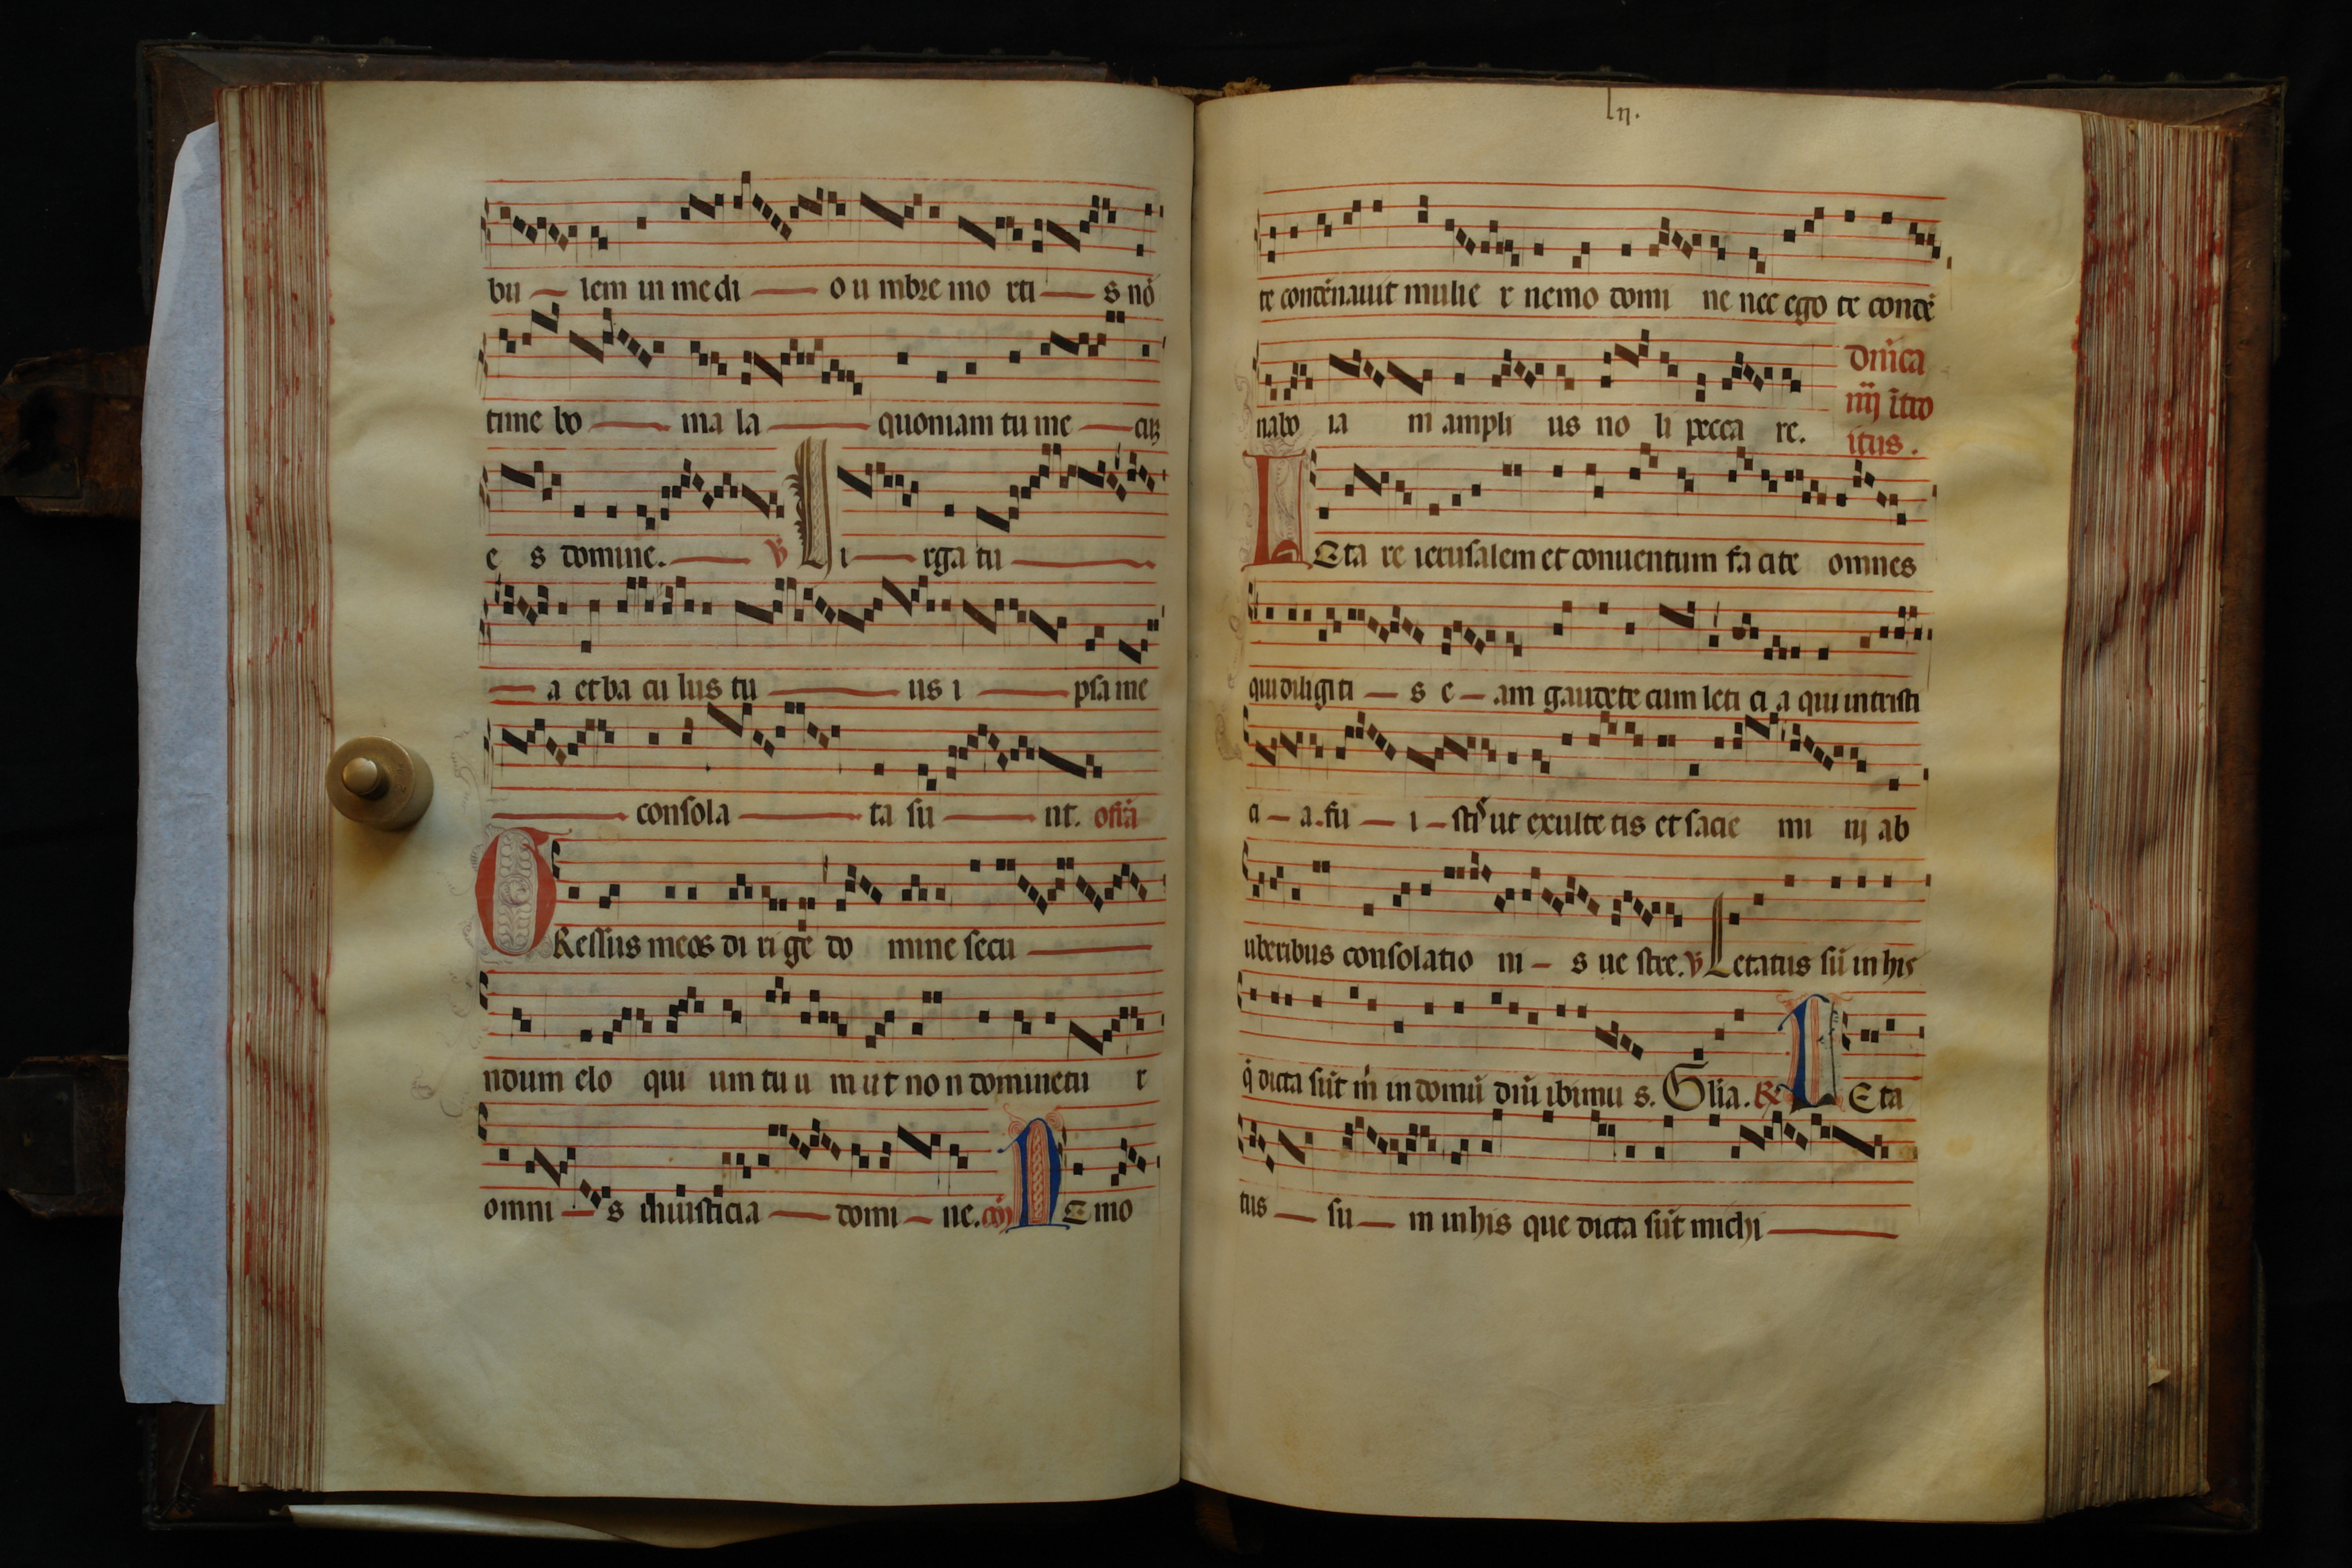 bu — lem in medi — o u mbre mo rti — s nō
time bo — ma la — quoniam tu me — cuꝫ
e s domine. — ℣ Li — rga tu —
— a et ba cu lus tu — us i — psa me
— consola — ta su — nt. offā
GRessus meos di ri ge do mine secu —
ndum elo qui um tu u m ut no n dominetu r
omni — s iniusticia — domi — ne. cōi NEmo
lij.
te condēnauit mulie r nemo domi ne nec ego te condē
nabo ia m ampli us no li pecca re.
Dn̄ica
iiij ītro
itus.
LEta re ierusalem et conuentum fa cite omnes
qui diligi ti — s e — am gaudete cum leti ci a qui in tristi
ci — a. fu — i — stis ut exulte tis et sacie mi nj ab
uberibus consolatio ni — s ue stre. ℣ Letatus sū in his
q̄ dicta sūt m̄ in domū dn̄i ibimu s. Glia. ℞ LEta
tus — su — m in his que dicta sūt michi —